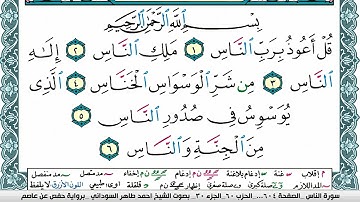 بِسْمِ اللَّهِ الرَّحْمَٰنِ الرَّحِيمِ
قُلْ أَعُوذُ بِرَبِّ النَّاسِ ١ مَلِكِ النَّاسِ ٢ إِلَٰهِ
النَّاسِ ٣ مِن شَرِّ الْوَسْوَاسِ الْخَنَّاسِ ٤ الَّذِي
يُوَسْوِسُ فِي صُدُورِ النَّاسِ ٥
مِنَ الْجِنَّةِ وَالنَّاسِ ٦
سورة الناس الصفحة ٦٠٤ الحزب ٦٠ الجزء ٣٠ بصوت الشيخ احمد طاهر السوداني رواية حفص عن عاصم